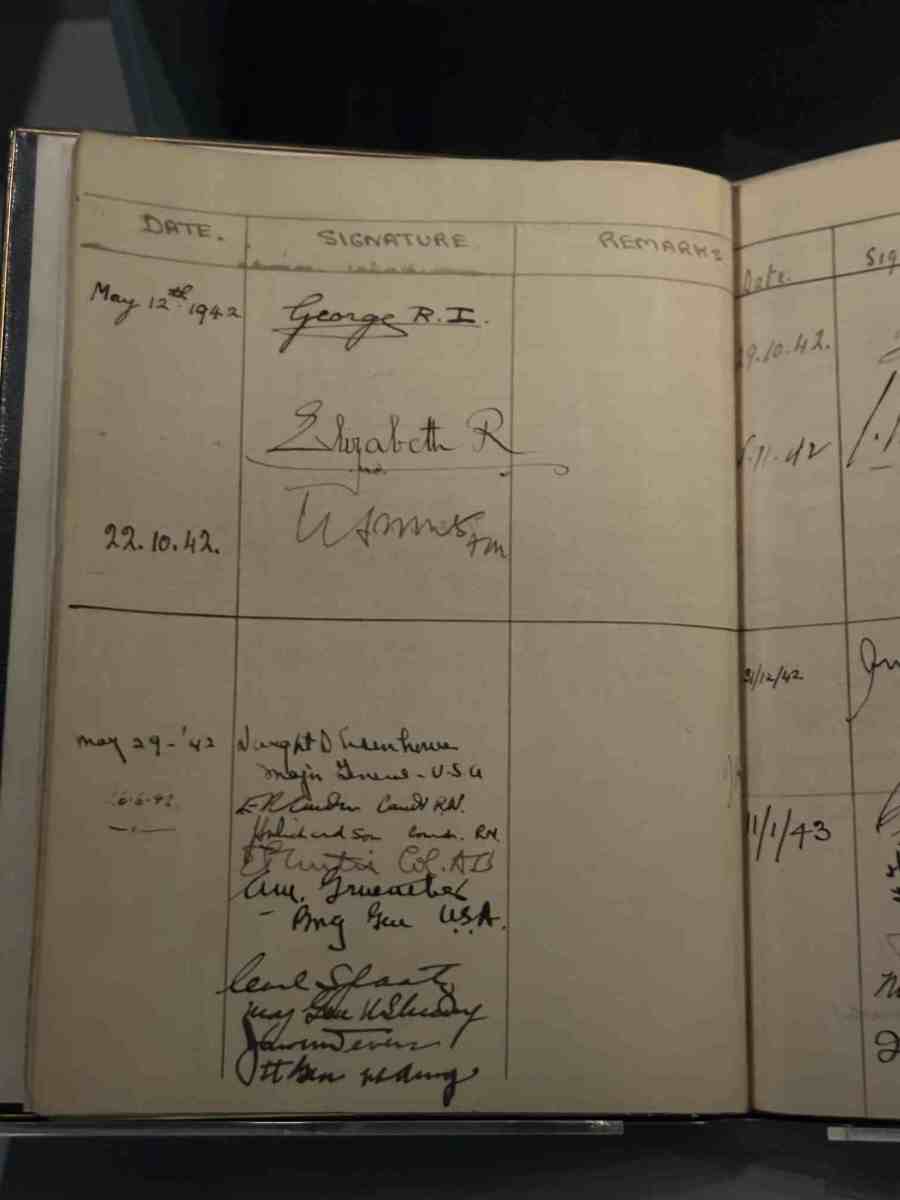 DATE. SIGNATURE REMARKS
May 12th 1942 George R.I.
Elizabeth R
22.10.42. Smuts FM
May 29-'42 Dwight D Eisenhower
Major General - USA
16.6.42. Comdr R.N.
Richardson Comdr. R.N.
Col. AUS
A.M. Gruenther
- Brig Gen U.S.A.
Carl Spaatz
Maj Gen US Army
Lt Gen US Army
Date. Sig
29.10.42.
.11.42
31/12/42
11/1/43